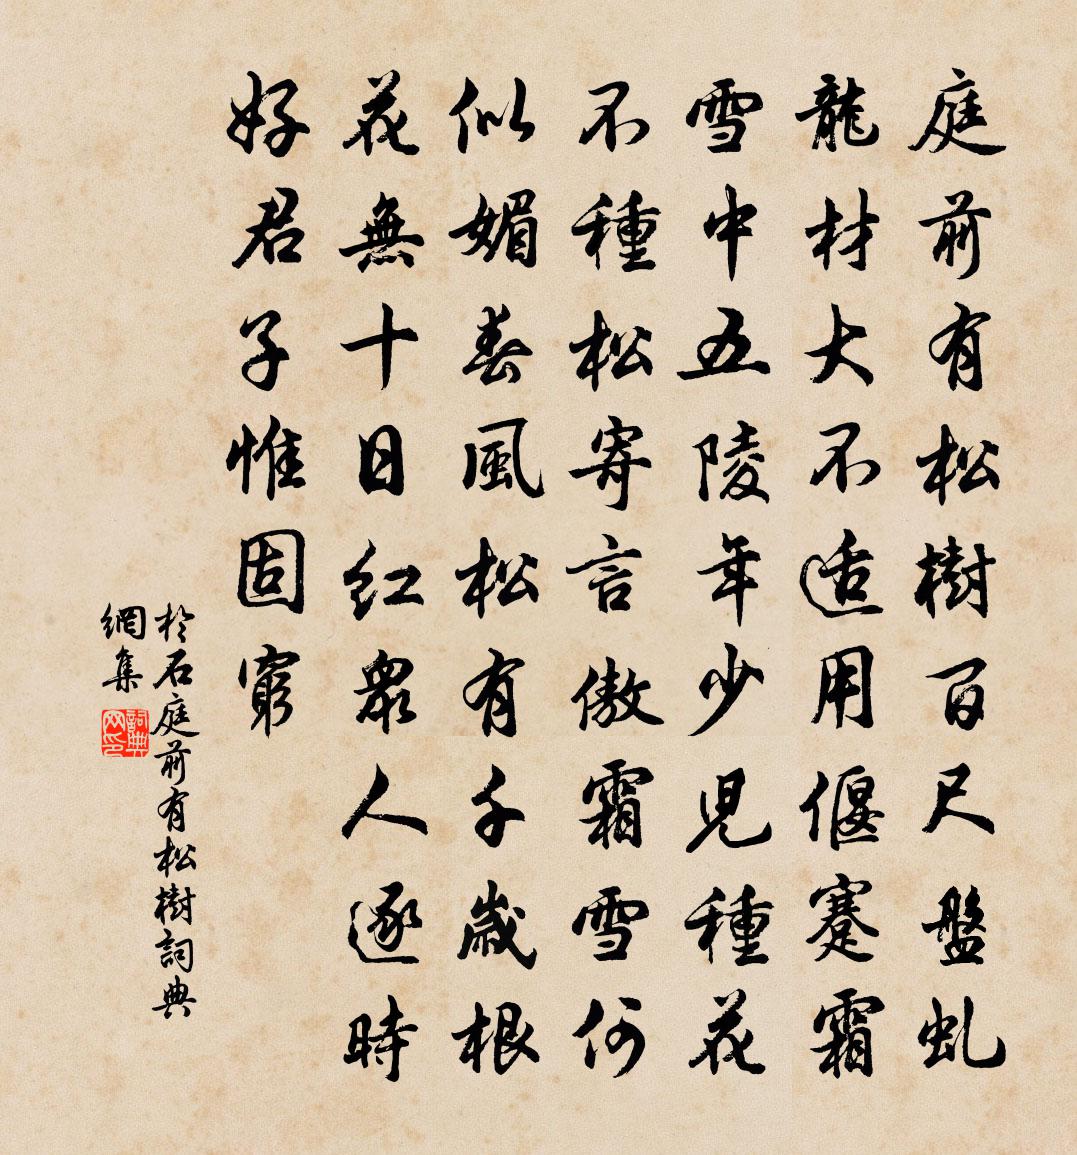 庭前有松樹百尺盤虬
龍材大不适用偃蹇霜
雪中五陵年少児種花
不種松寄言傲霜雪何
似媚春風松有千歲根
花無十日红眾人逐時
好君子惟固窮
於石庭前有松樹詞典
網集
詞典网印